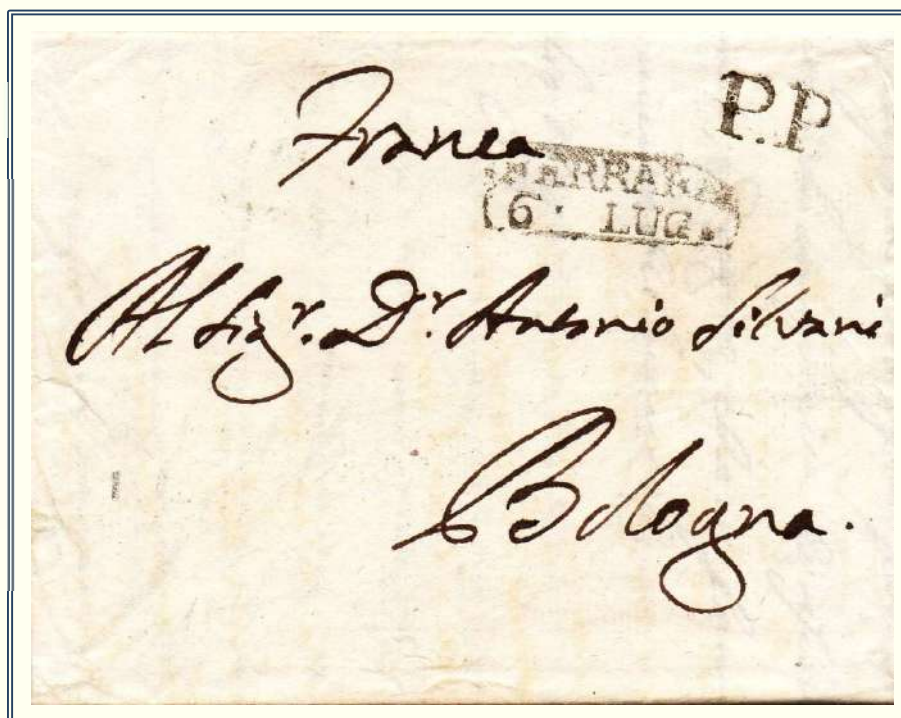 P.P
Franca
FERRARA
6 LUG.
Al Sigr. Dr. Antonio Silvani
Bologna.